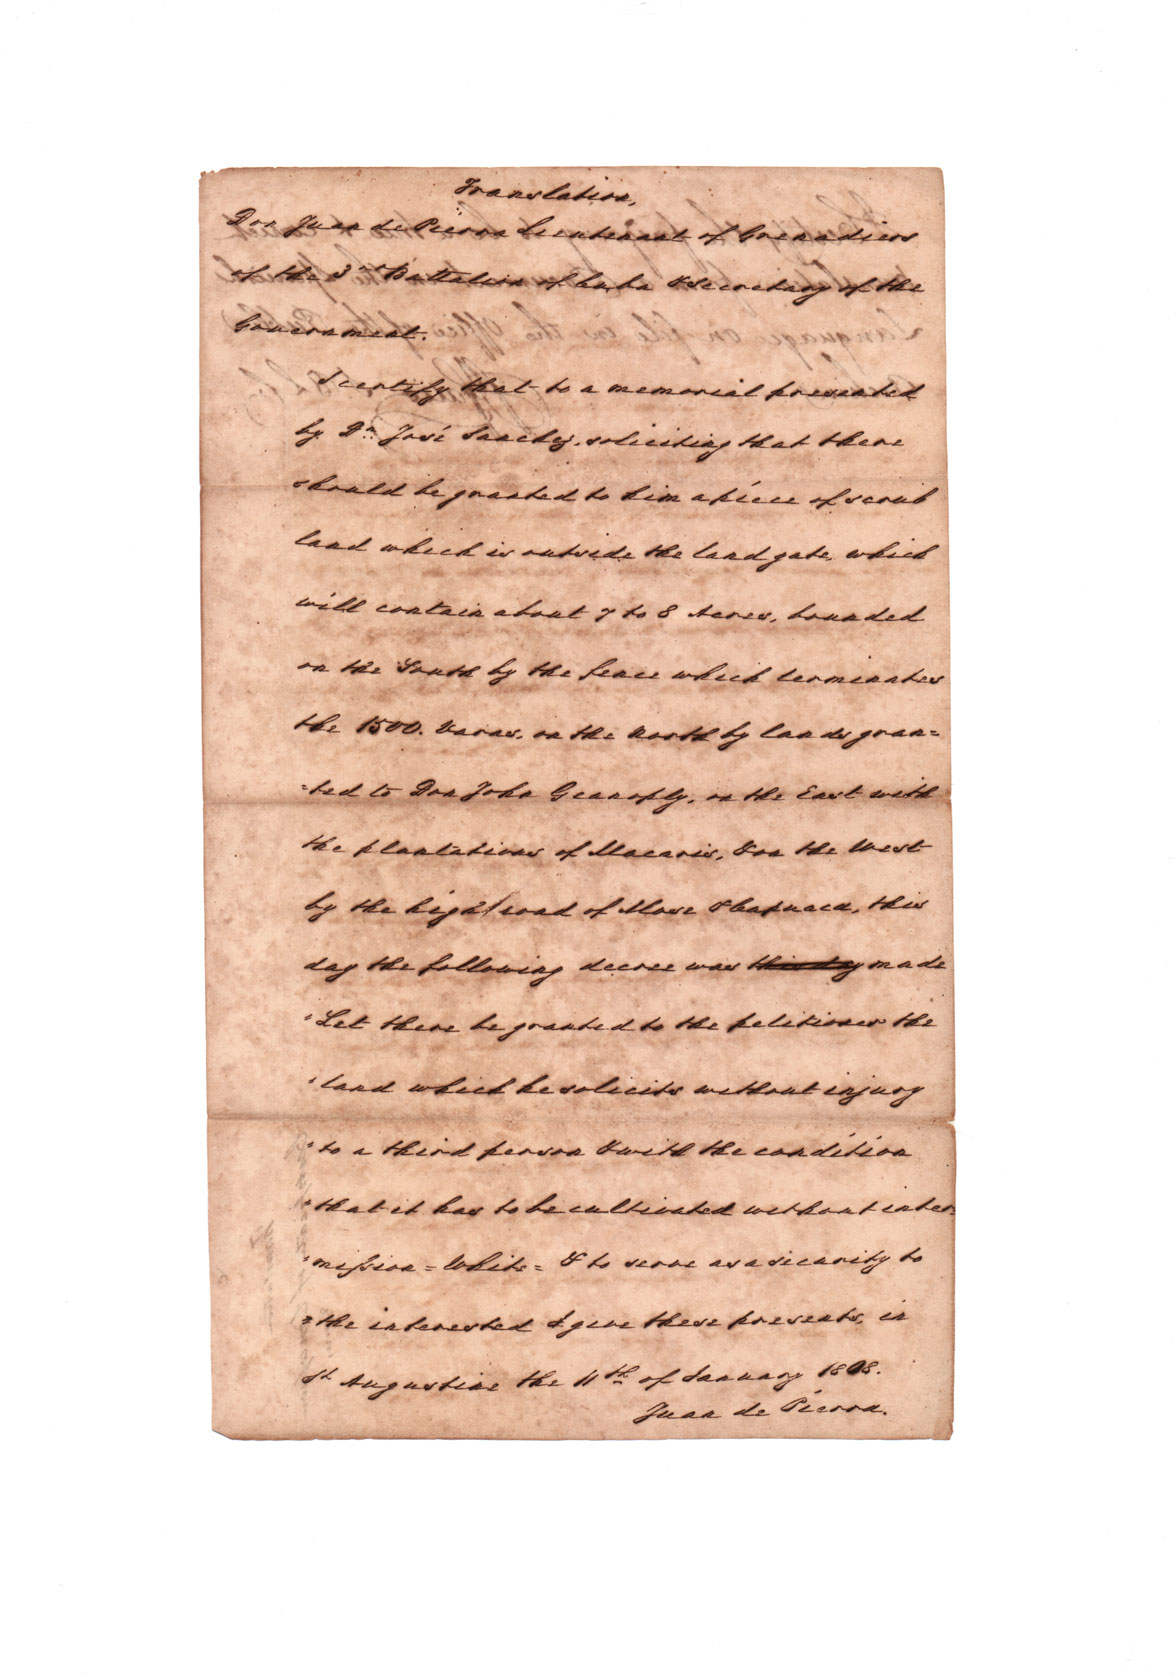 Translation,
Don Juan de Pierra Lieutenant of Grenadiers
of the 3rd Battalion of Cuba & Secretary of the
Government.
I certify that to a memorial presented
by Dn. José Sanchez, soliciting that there
should be granted to him a piece of scrub
land which is outside the land gate, which
will contain about 7 to 8 Acres, bounded
on the South by the fence which terminates
the 1500. Varas, on the North by lands gran=
=ted to Don John Genoply, on the East with
the plantations of Macaris, & on the West
by the high road of Mose & Capuaca, this
day the following decree was this day made
"Let there be granted to the petitioner the
"land which he solicits without injury
"to a third person & with the condition
"that it has to be cultivated without inter=
"mission = White = & to serve as a security to
=the interested I give these presents, in
St. Augustine the 11th of January 1808.
Juan de Pierra.